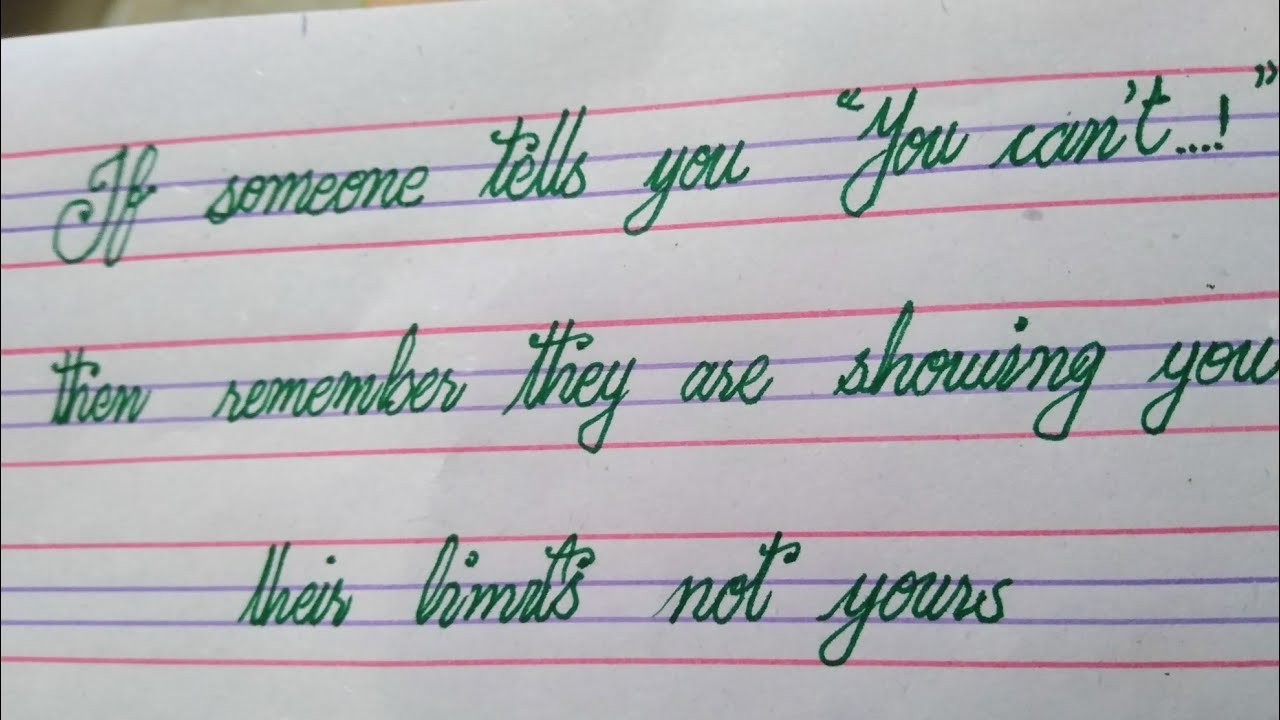 If someone tells you “You can't....!”
then remember they are showing you
their limits not yours